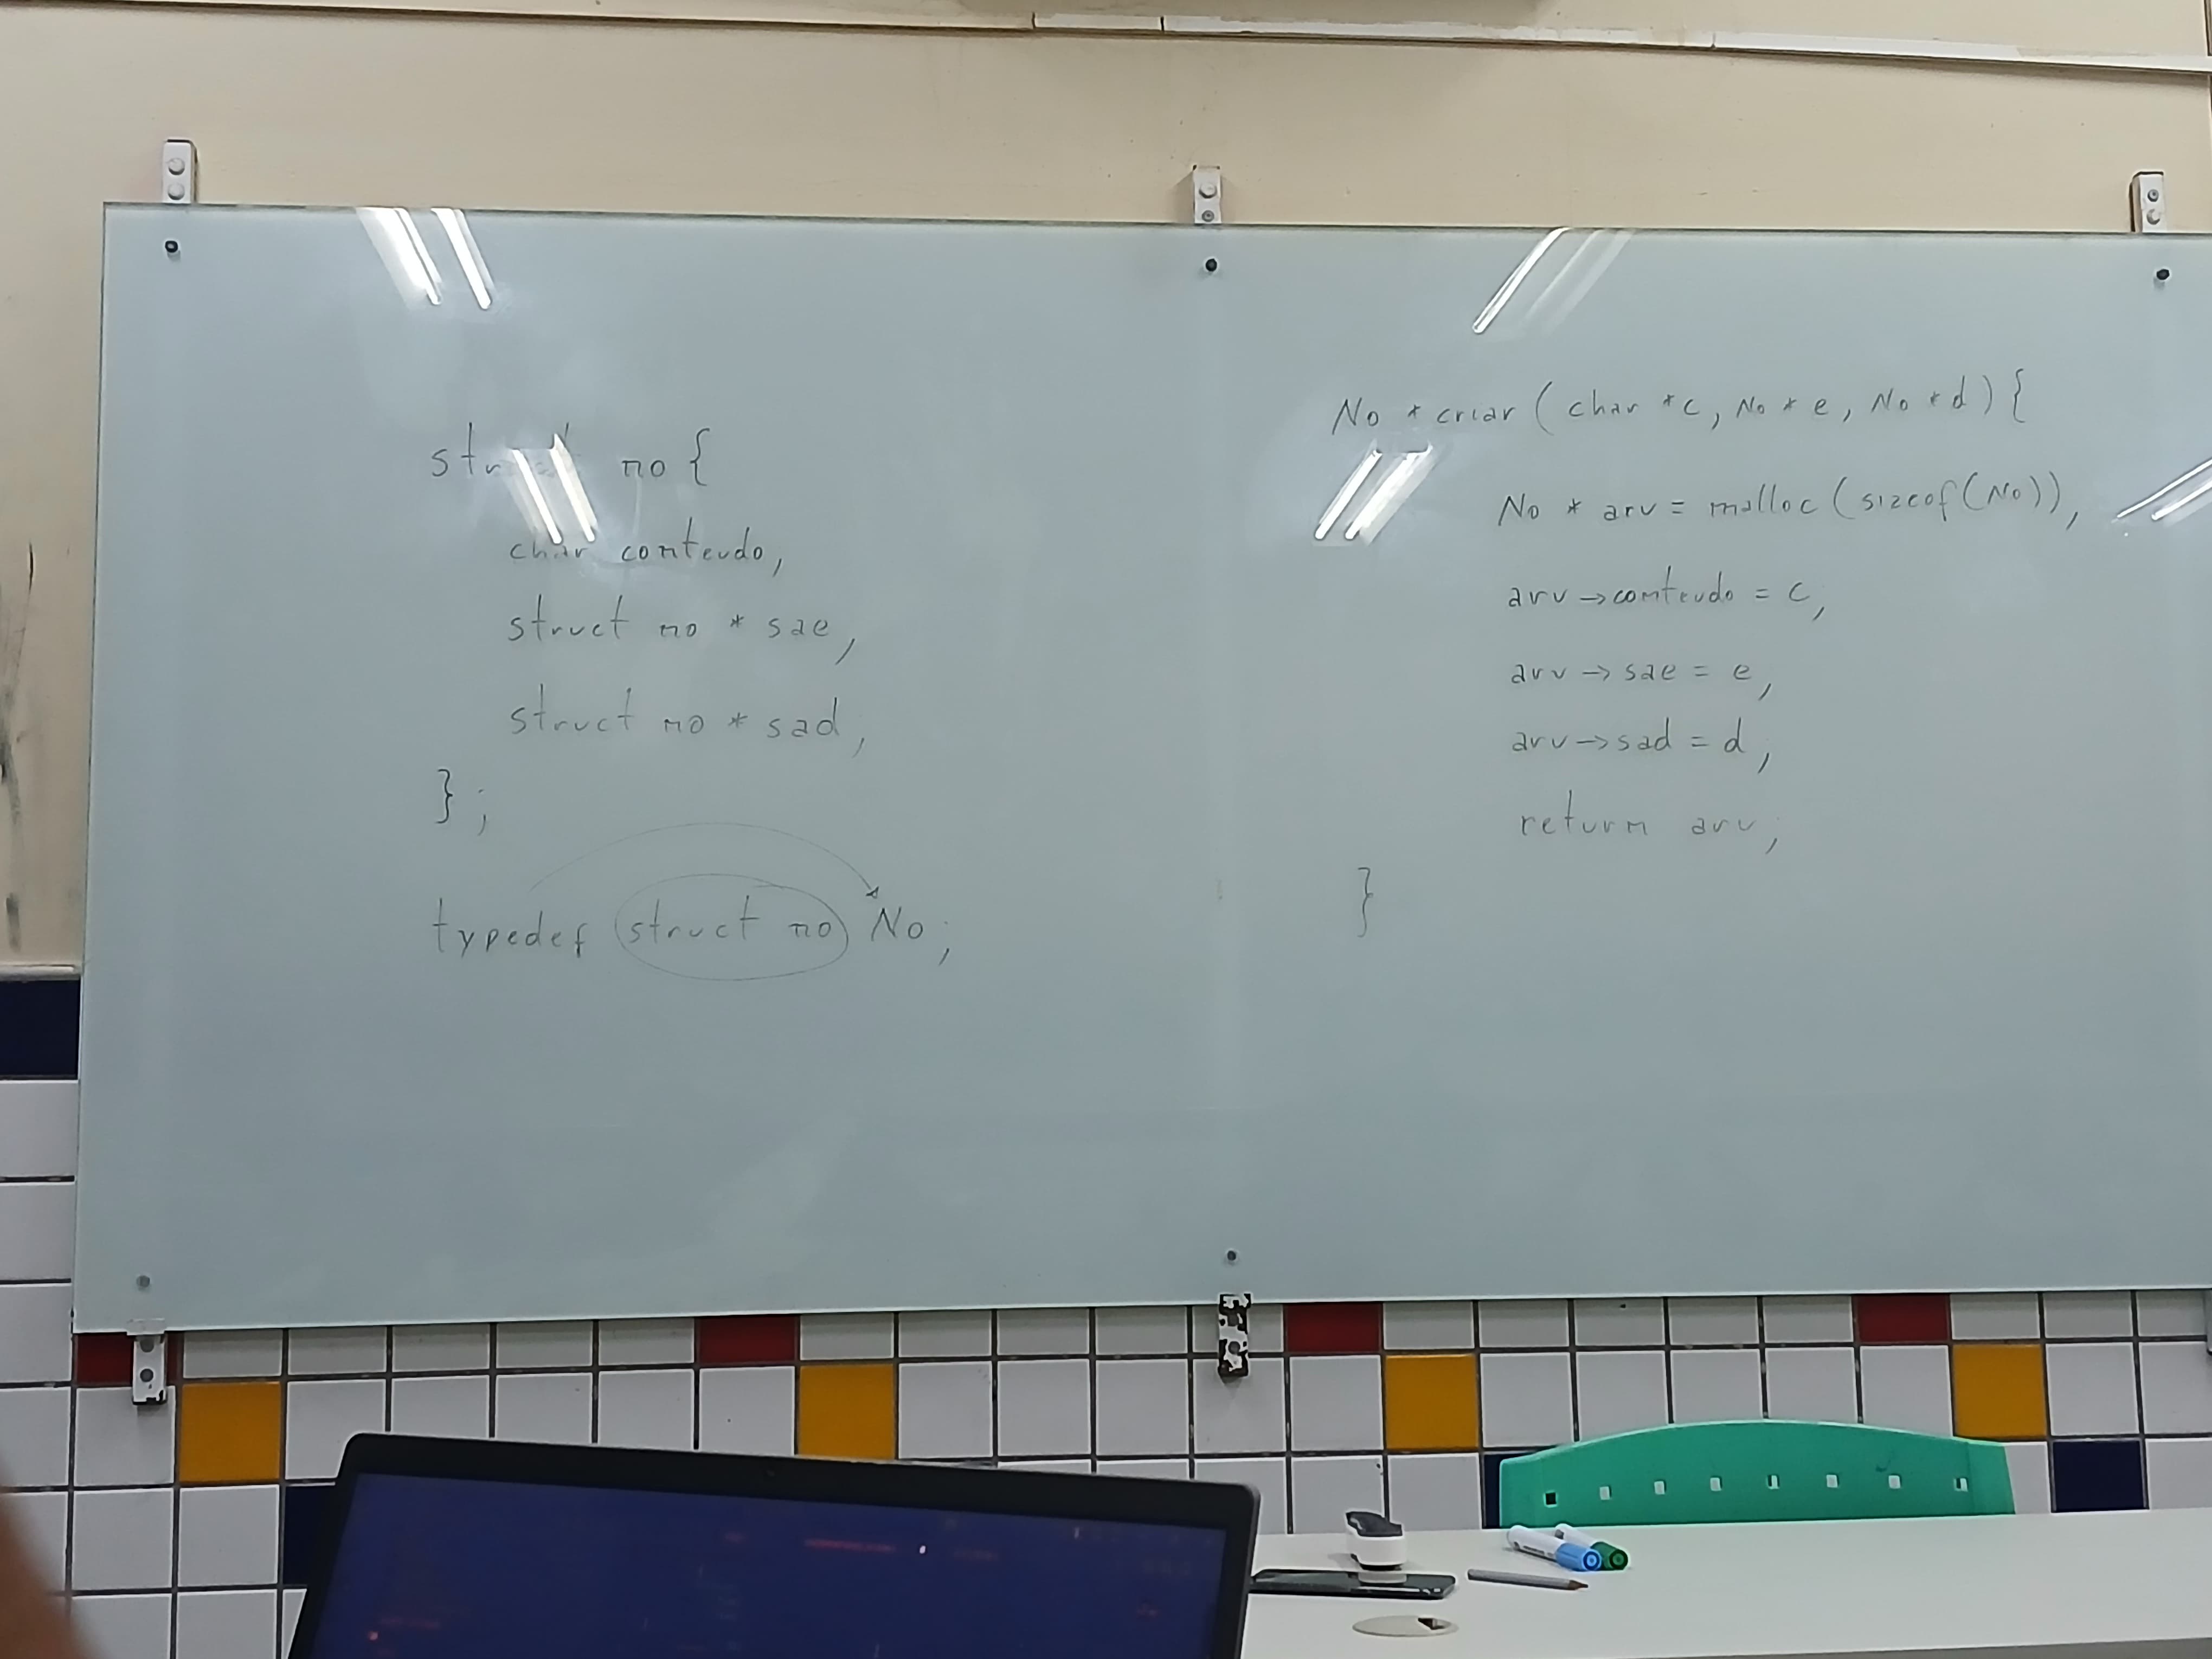 struct no {
char conteudo;
struct no * sae;
struct no * sad;
};
typedef struct no No;
No * criar (char *c, No * e, No * d) {
No * arv = malloc (sizeof(No));
arv → conteudo = c;
arv → sae = e;
arv → sad = d;
return arv;
}